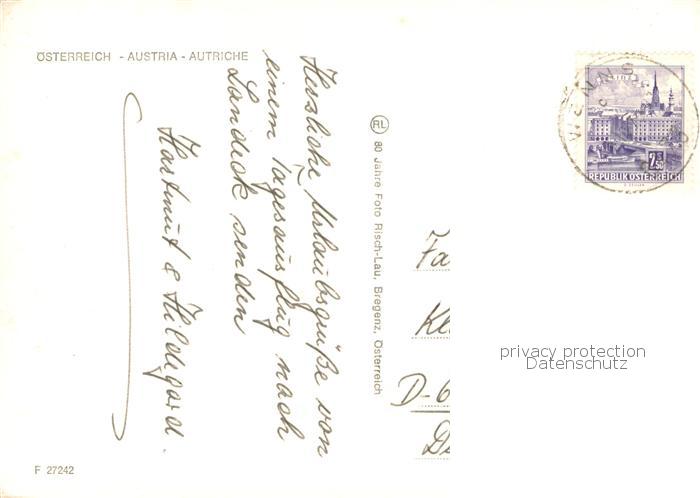 ÖSTERREICH - AUSTRIA - AUTRICHE
Herzliche Urlaubsgrüße von
einem Tagesausflug nach
Landeck senden
Hartmut & Hildegard.
RL 80 Jahre Foto Risch-Lau, Bregenz, Österreich
LINZ
2.50
REPUBLIK ÖSTERREICH
Fa
D-6
privacy protection
Datenschutz
F 27242